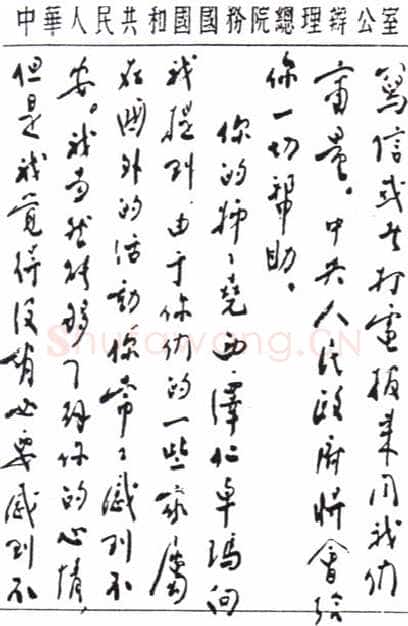 中華人民共和國國務院總理辦公室
寫信或者打電报来同我们
商量。中央人民政府將會给
你一切帮助。
你的姊々尧西·澤仁卓瑪向
我提到,由于你们的一些家屬
在國外的活動,你常々感到不
安。我当然能够了解你的心情,
但是我觉得没有必要感到不
Shufawang.CN